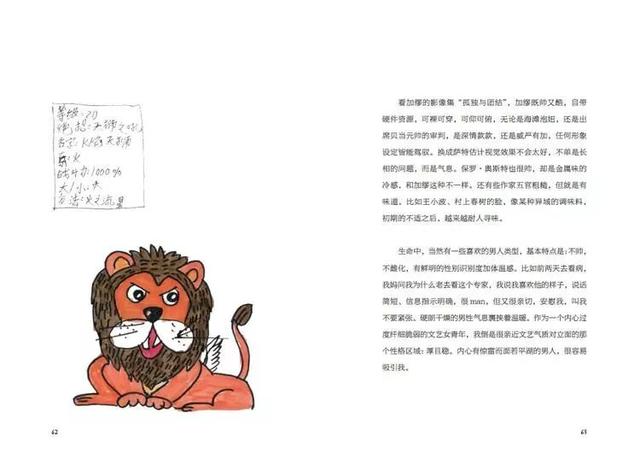 等级:20
战斗力1000%
大小:大
62
看加缪的影像集“孤独与团结”，加缪既帅又酷，自带
硬件资源，可裸可穿，可仰可俯，无论是海滩泡妞，还是出
席贝当元帅的审判，是深情款款，还是威严有加，任何形象
设定皆能驾驭。换成萨特估计视觉效果不会太好，不单是长
相的问题，而是气息。保罗·奥斯特也很帅，却是金属味的
冷感，和加缪这种不一样。还有些作家五官粗糙，但就是有
味道，比如王小波、村上春树的脸，像某种异域的调味料，
初期的不适之后，越来越耐人寻味。
生命中，当然有一些喜欢的男人类型，基本特点是：不帅，
不雌化，有鲜明的性别识别度加体温感。比如前两天去看病，
我妈问我为什么老去看这个专家，我说我喜欢他的样子，说话
简短、信息指示明确，很 man，但又很亲切，安慰我，叫我
不要紧张。硬朗干燥的男性气息裹挟着温暖。作为一个内心过
度纤细脆弱的文艺女青年，我倒是很亲近文艺气质对立面的那
个性格区域：厚且稳。内心有惊雷而面若平湖的男人，很容易
吸引我。
63